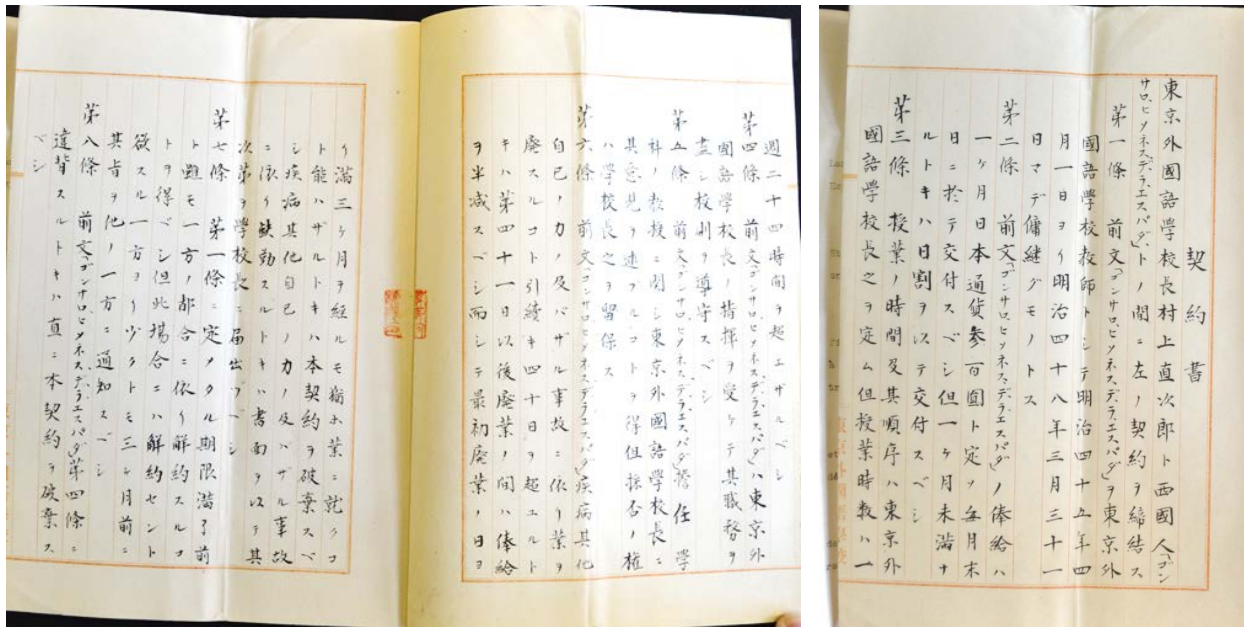 契約書
東京外國語學校長村上直次郎ト西國人「ゴン
サロ、ヒメネス、デ、ラ、エスパダ」トノ間ニ左ノ契約ヲ締結ス
第一條 前文「ゴンサロ、ヒメネス、デ、ラ、エスパダ」ヲ東京外
國語學校教師トシテ明治四十五年四
月一日ヨリ明治四十八年三月三十一
日マデ傭繼グモノトス
第二條 前文「ゴンサロ、ヒメネス、デ、ラ、エスパダ」ノ俸給ハ
一ヶ月日本通貨參百圓ト定メ每月末
日ニ於テ交付スベシ但一ヶ月未滿ナ
ルトキハ日割ヲ以テ交付スベシ
第三條 授業ノ時間及其順序ハ東京外
國語學校長之ヲ定ム但授業時數ハ一
週二十四時間ヲ超エザルベシ
第四條 前文「ゴンサロ、ヒメネス、デ、ラ、エスパダ」ハ東京外
國語學校長ノ指揮ヲ受ケテ其職務ヲ
盡シ校則ヲ遵守スベシ
第五條 前文「ゴンサロ、ヒメネス、デ、ラ、エスパダ」擔任學
科ノ教授ニ関シ東京外國語學校長ニ
其意見ヲ述ブルコトヲ得但採否ノ権
ハ學校長之ヲ留保ス
第六條 前文「ゴンサロ、ヒメネス、デ、ラ、エスパダ」疾病其他
自己ノ力ノ及バザル事故ニ依リ業ヲ
廃スルコト引續キ四十日ヲ超エルト
キハ第四十一日以後廃業ノ間ハ俸給
ヲ半減スベシ而シテ最初廃業ノ日ヨ
リ滿三ヶ月ヲ経ルモ猶ホ業ニ就クコ
ト能ハザルトキハ本契約ヲ破棄スベ
シ疾病其他自己ノ力ノ及バザル事故
ニ依リ缺勤スルトキハ書面ヲ以テ其
次第ヲ學校長ニ届出ヅベシ
第七條 第一條ニ定メタル期限滿了前
ト雖モ一方ノ都合ニ依リ解約スルコ
トヲ得ベシ但此場合ニハ解約セント
欲スル一方ヨリ少クトモ三ヶ月前ニ
其旨ヲ他ノ一方ニ通知スベシ
第八條 前文「ゴンサロ、ヒメネス、デ、ラ、エスパダ」第四條ニ
違背スルトキハ直ニ本契約ヲ破棄ス
ベシ